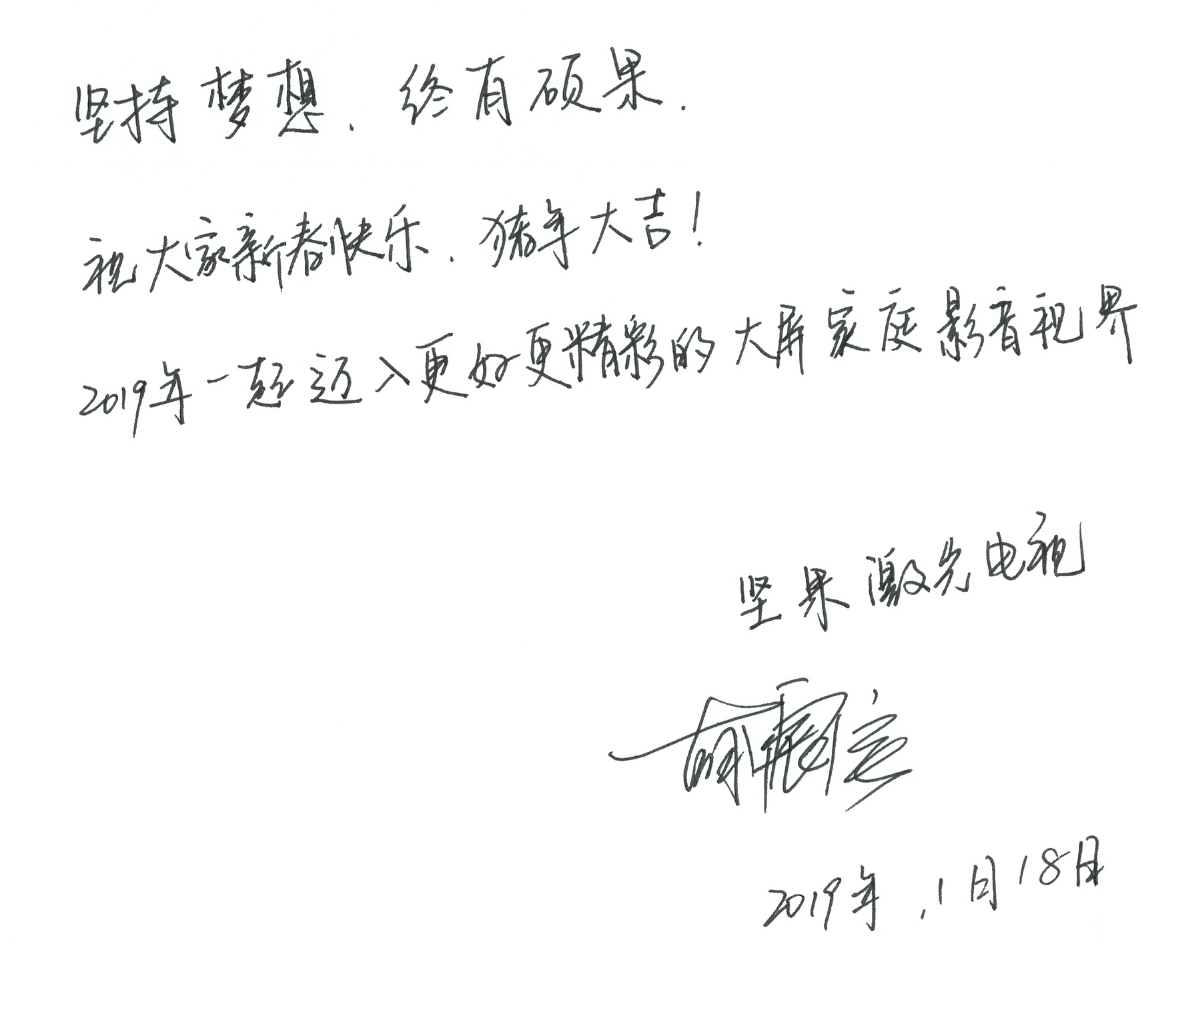 坚持梦想、终有硕果.
祝大家新春快乐、猪年大吉!
2019年一起迈入更好更精彩的大屏家庭影音视界
坚果激光电视
2019年.1月18日